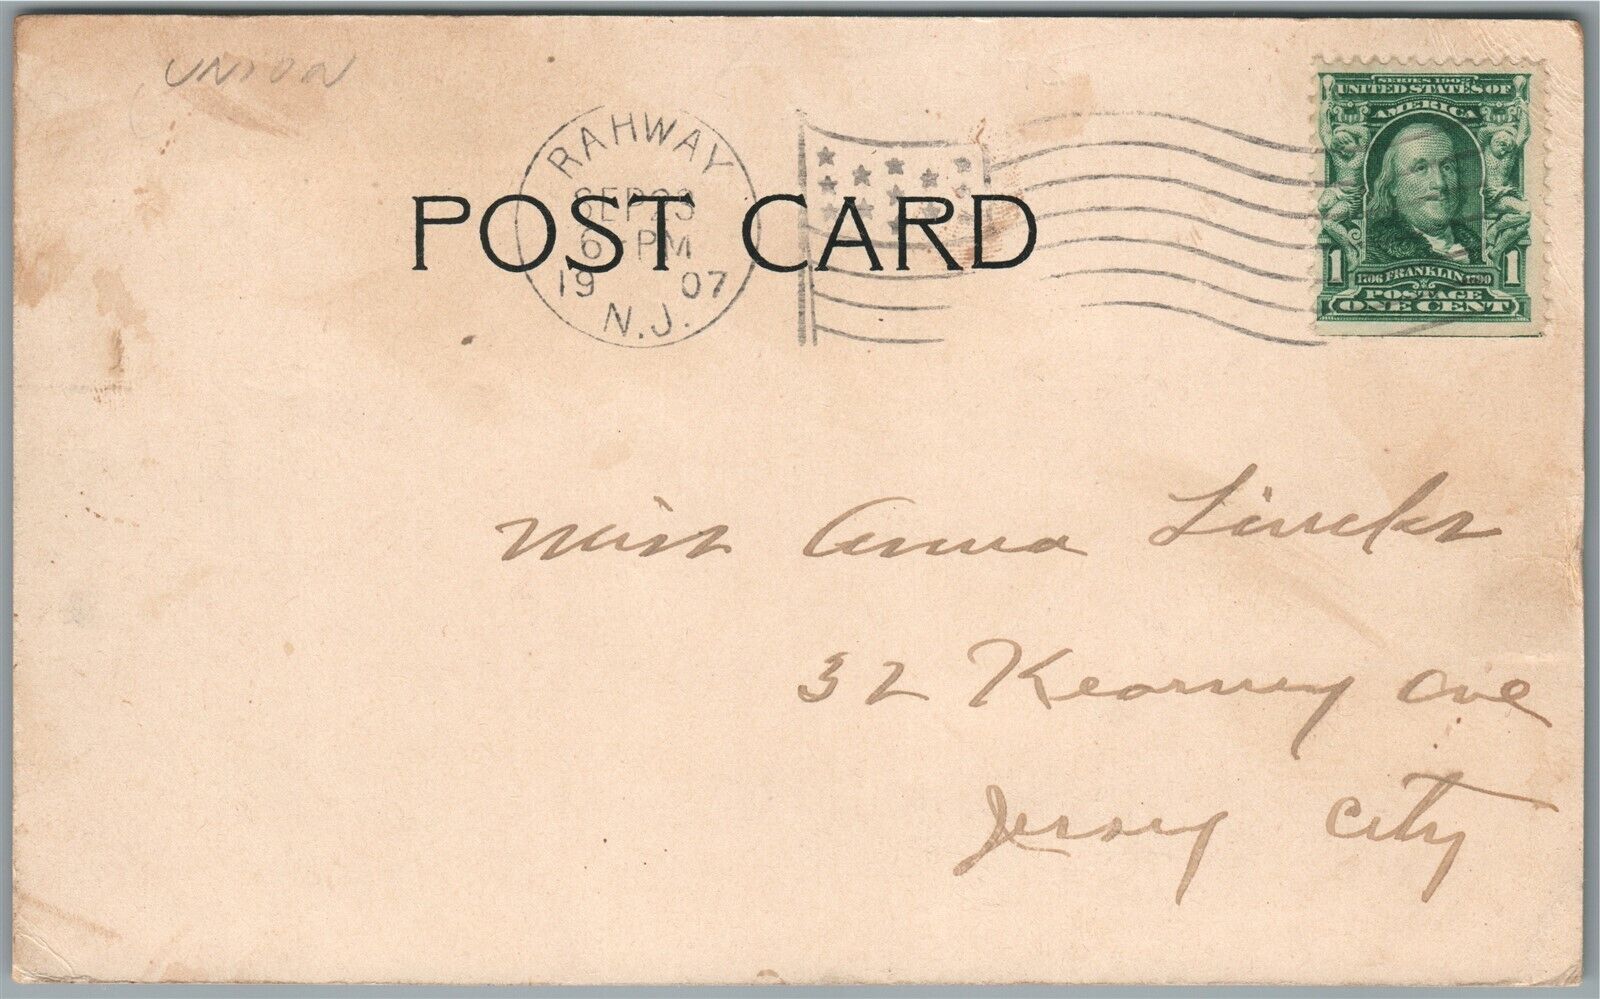 UNION
RAHWAY
SEP 23
6 PM
1907
N.J.
POST CARD
SERIES 1902
UNITED STATES OF
AMERICA
1706 FRANKLIN 1790
1 1
POSTAGE
ONE CENT
Miss Anna
32 Kearney Ave
Jersey City